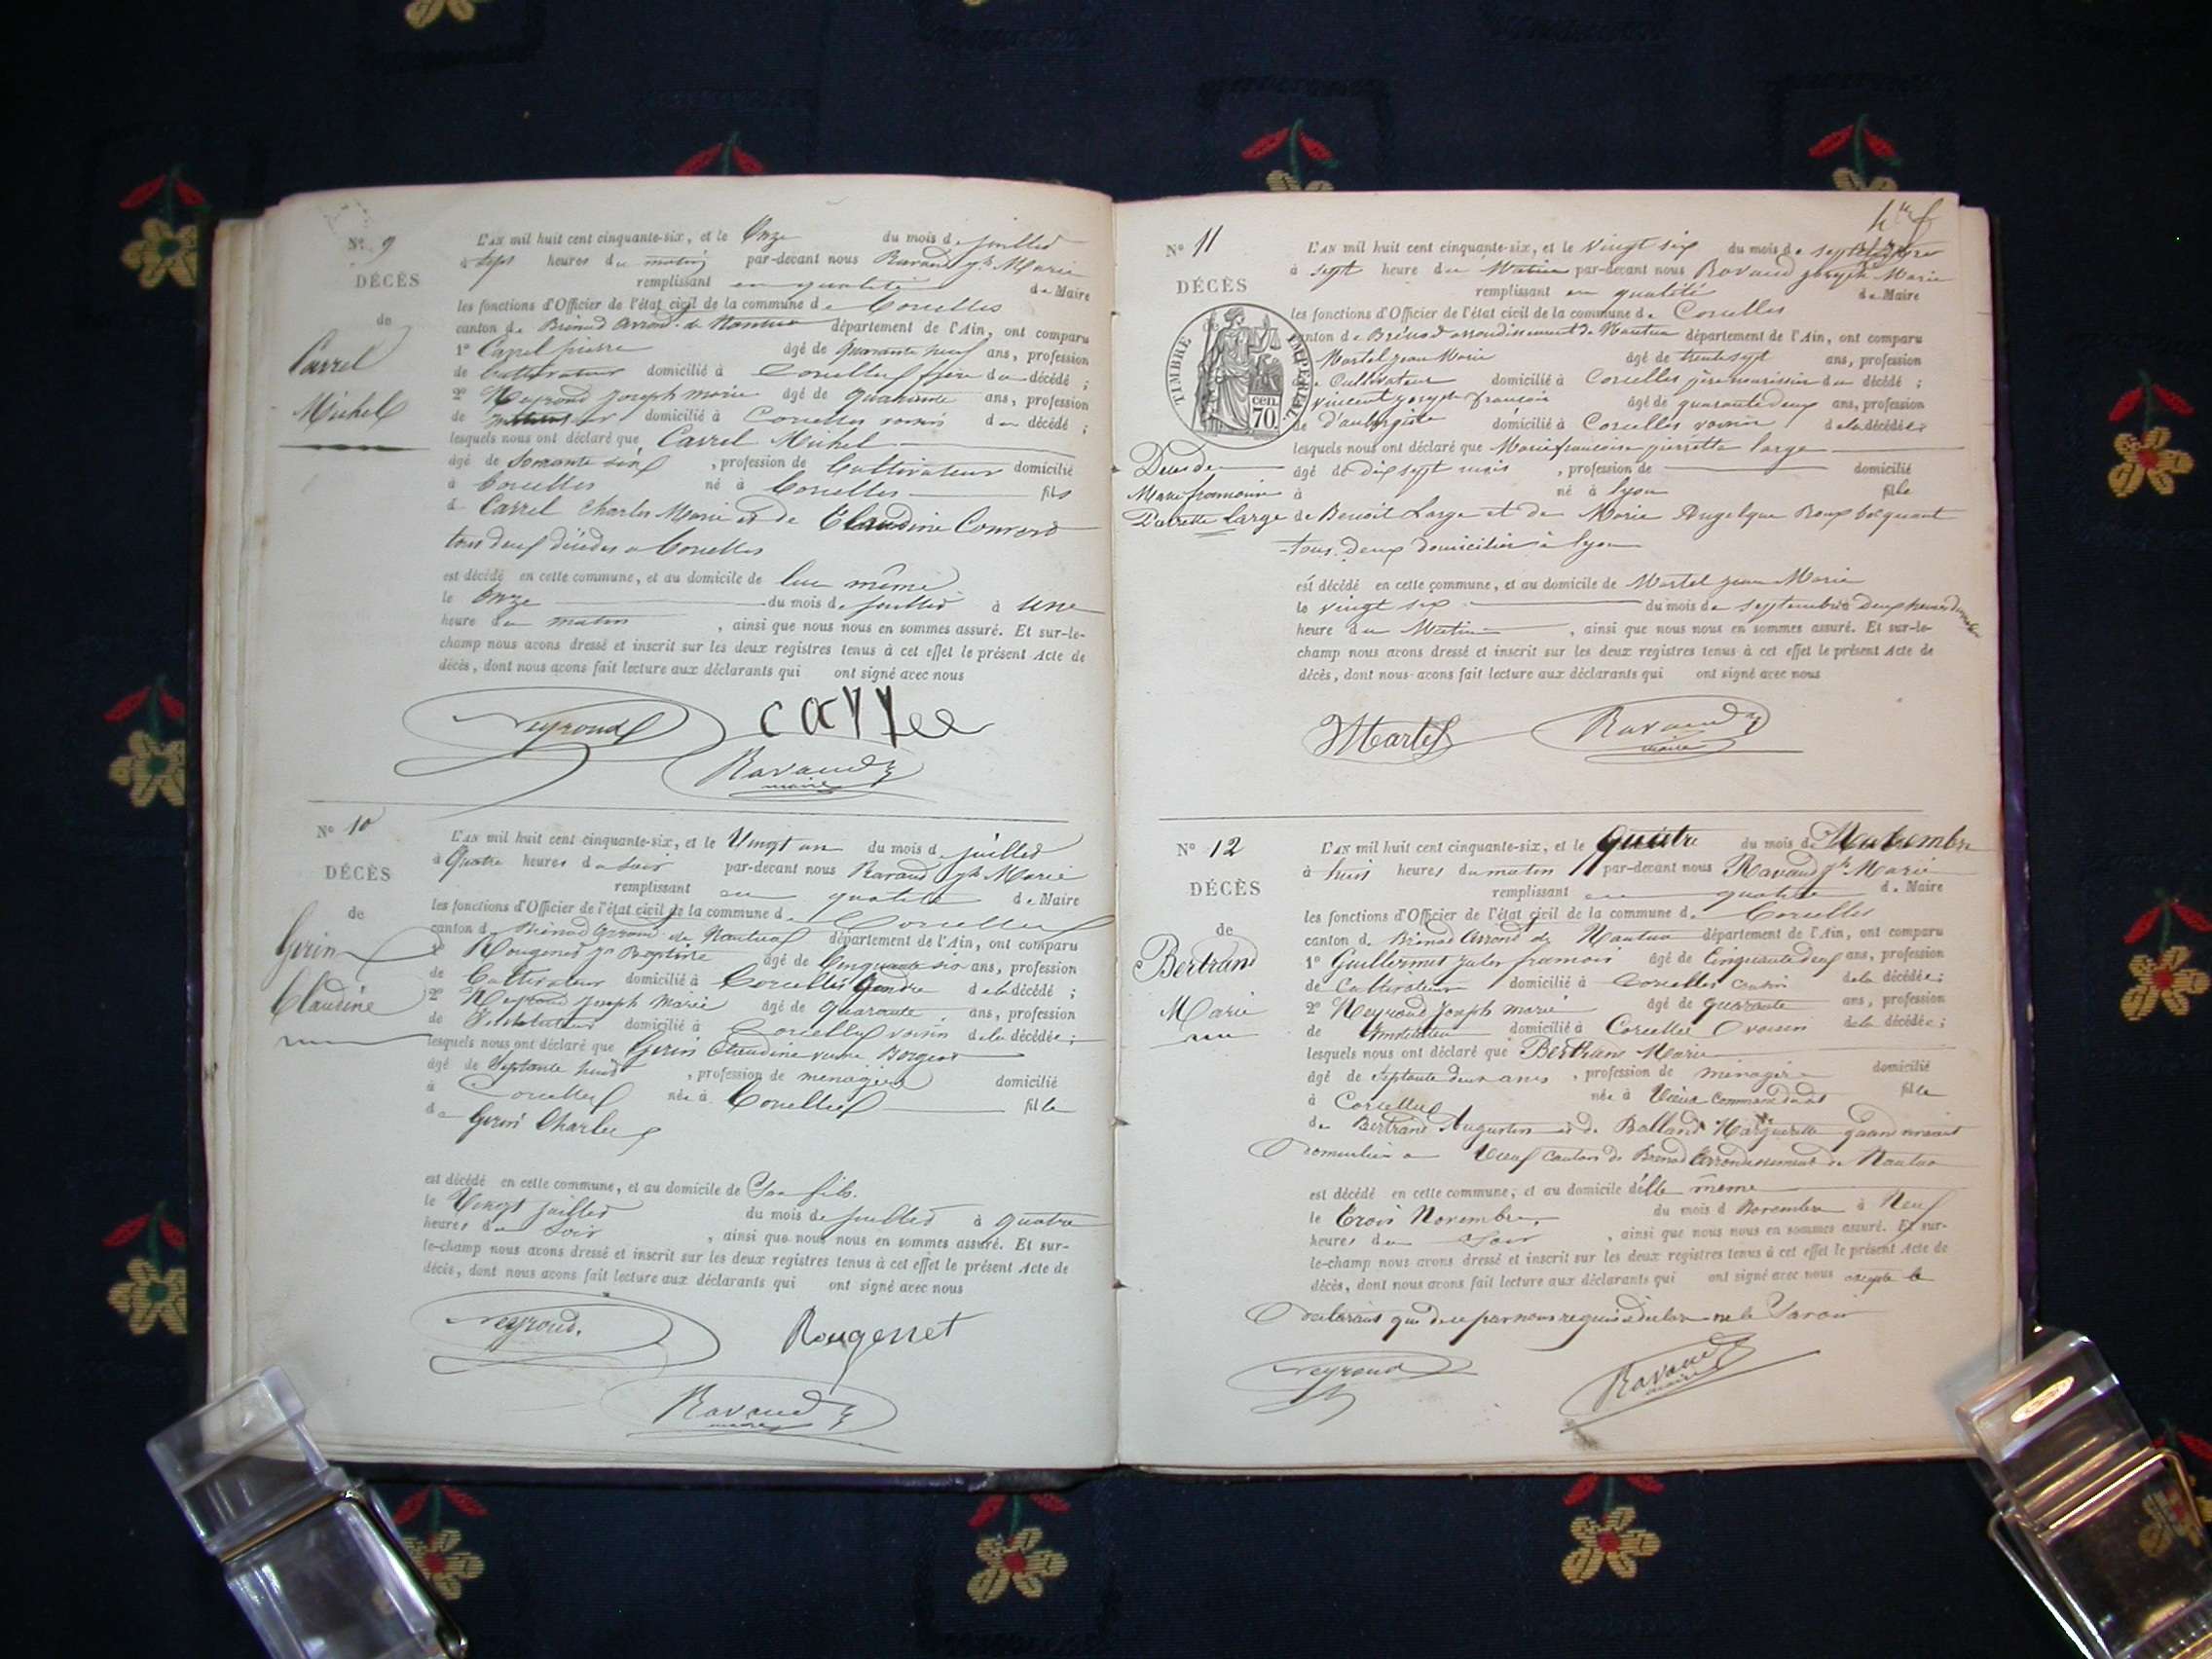 N° 9
DÉCÈS
de
Carrel
Michel
L'AN mil huit cent cinquante-six, et le Onze du mois de juillet
à sept heures du matin par-devant nous Ravaud Jh Marie
remplissant en qualité de Maire
les fonctions d'Officier de l'état civil de la commune de Corcelles
canton de Brénod arrond. de Nantua département de l'Ain, ont comparu
1° Carrel pierre âgé de quarante neuf ans, profession
de Cultivateur domicilié à Corcelles frère du décédé ;
2° Neyroud Joseph marie âgé de quarante ans, profession
de domicilié à Corcelles voisin du décédé ;
lesquels nous ont déclaré que Carrel Michel
âgé de soixante six , profession de Cultivateur domicilié
à Corcelles né à Corcelles fils
de Carrel Charles Marie et de Claudine
tous deux décédés a Corcelles
est décédé en cette commune, et au domicile de lui même
le Onze du mois de juillet à une
heure du matin , ainsi que nous nous en sommes assuré. Et sur-le-
champ nous avons dressé et inscrit sur les deux registres tenus à cet effet le présent Acte de
décès, dont nous avons fait lecture aux déclarants qui ont signé avec nous
Neyroud
Ravaud
maire
N° 10
DÉCÈS
de
Gerin
Claudine
L'AN mil huit cent cinquante-six, et le Vingt un du mois de juillet
à Quatre heures du soir par-devant nous Ravaud Jh Marie
remplissant en qualité de Maire
les fonctions d'Officier de l'état civil de la commune de Corcelles
canton de Brénod arrond. de Nantua département de l'Ain, ont comparu
1° Rougemet Jn Baptiste âgé de Cinquante six ans, profession
de Cultivateur domicilié à Corcelles Gendre de la décédé ;
2° Neyroud Joseph Marie âgé de quarante ans, profession
de Instituteur domicilié à Corcelles voisin de la décédée ;
lesquels nous ont déclaré que Gerin Claudine veuve
âgé de Septante huit , profession de menagère domicilié
à Corcelles née à Corcelles fille
de Gerin Charles
est décédé en cette commune, et au domicile de Son fils.
le Vingt juillet du mois de juillet à quatre
heures du Soir , ainsi que nous nous en sommes assuré. Et sur-
le-champ nous avons dressé et inscrit sur les deux registres tenus à cet effet le présent Acte de
décès, dont nous avons fait lecture aux déclarants qui ont signé avec nous
Neyroud.
Ravaud
maire
N° 11
DÉCÈS
de
TIMBRE IMPÉRIAL
cen.
70.
Deces de
Marie francoise
Pierrette Large
L'AN mil huit cent cinquante-six, et le vingt six du mois de septembre
à sept heure du Matin par-devant nous Ravaud Joseph Marie
remplissant en qualité de Maire
les fonctions d'Officier de l'état civil de la commune de Corcelles
canton de Brénod arrondissement de Nantua département de l'Ain, ont comparu
Martel jean Marie âgé de trente sept ans, profession
de Cultivateur domicilié à Corcelles père nourissier du décédé ;
vincent joseph francois âgé de quarante deux ans, profession
de d'aubergiste domicilié à Corcelles voisin de la décédée ;
lesquels nous ont déclaré que Marie francoise pierrette large
âgé de dix sept mois , profession de domicilié
à né à lyon fille
de Benoit Large et de Marie Angelique Roux
tous deux domiciliés à lyon
est décédé en cette commune, et au domicile de Martel jean Marie
le vingt six du mois de septembre à deux heures du matin
heure du Matin , ainsi que nous nous en sommes assuré. Et sur-le-
champ nous avons dressé et inscrit sur les deux registres tenus à cet effet le présent Acte de
décès, dont nous avons fait lecture aux déclarants qui ont signé avec nous
Martel
Ravaud
maire
N° 12
DÉCÈS
de
Bertrand
Marie
L'AN mil huit cent cinquante-six, et le quatre du mois de Novembre
à huit heures du matin par-devant nous Ravaud Jh Marie
remplissant en qualité de Maire
les fonctions d'Officier de l'état civil de la commune de Corcelles
canton de Brénod Arrond de Nantua département de l'Ain, ont comparu
1° Guillermet francois âgé de Cinquante deux ans, profession
de Cultivateur domicilié à Corcelles cousin de la décédée ;
2° Neyroud Joseph marie âgé de quarante ans, profession
de Instituteur domicilié à Corcelles voisin de la décédée ;
lesquels nous ont déclaré que Bertrand Marie
âgé de septante deux ans , profession de ménagère domicilié
à Corcelles née à Vieux fille
de Bertrand Augustin et de Balland Marguerite quand vivaient
domiciliés a Vieux Canton de Brénod Arrondissement de Nantua
est décédé en cette commune, et au domicile d'elle même
le trois Novembre, du mois d Novembre à Neuf
heures du Soir , ainsi que nous nous en sommes assuré. Et sur-
le-champ nous avons dressé et inscrit sur les deux registres tenus à cet effet le présent Acte de
décès, dont nous avons fait lecture aux déclarants qui ont signé avec nous excepté le
déclarant qui de ce par nous requis a déclaré ne le Savoir
Neyroud
Ravaud
maire